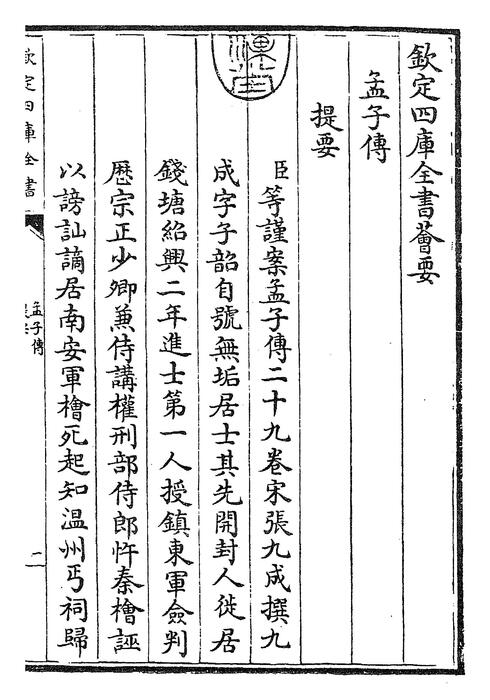 欽定四庫全書薈要
孟子傳
提要
臣等謹案孟子傳二十九卷宋張九成撰九
成字子韶自號無垢居士其先開封人徙居
錢塘紹興二年進士第一人授鎮東軍僉判
歷宗正少卿兼侍講權刑部侍郎忤秦檜誣
以謗訕謫居南安軍檜死起知溫州丐祠歸
欽定四庫全書
孟子傳